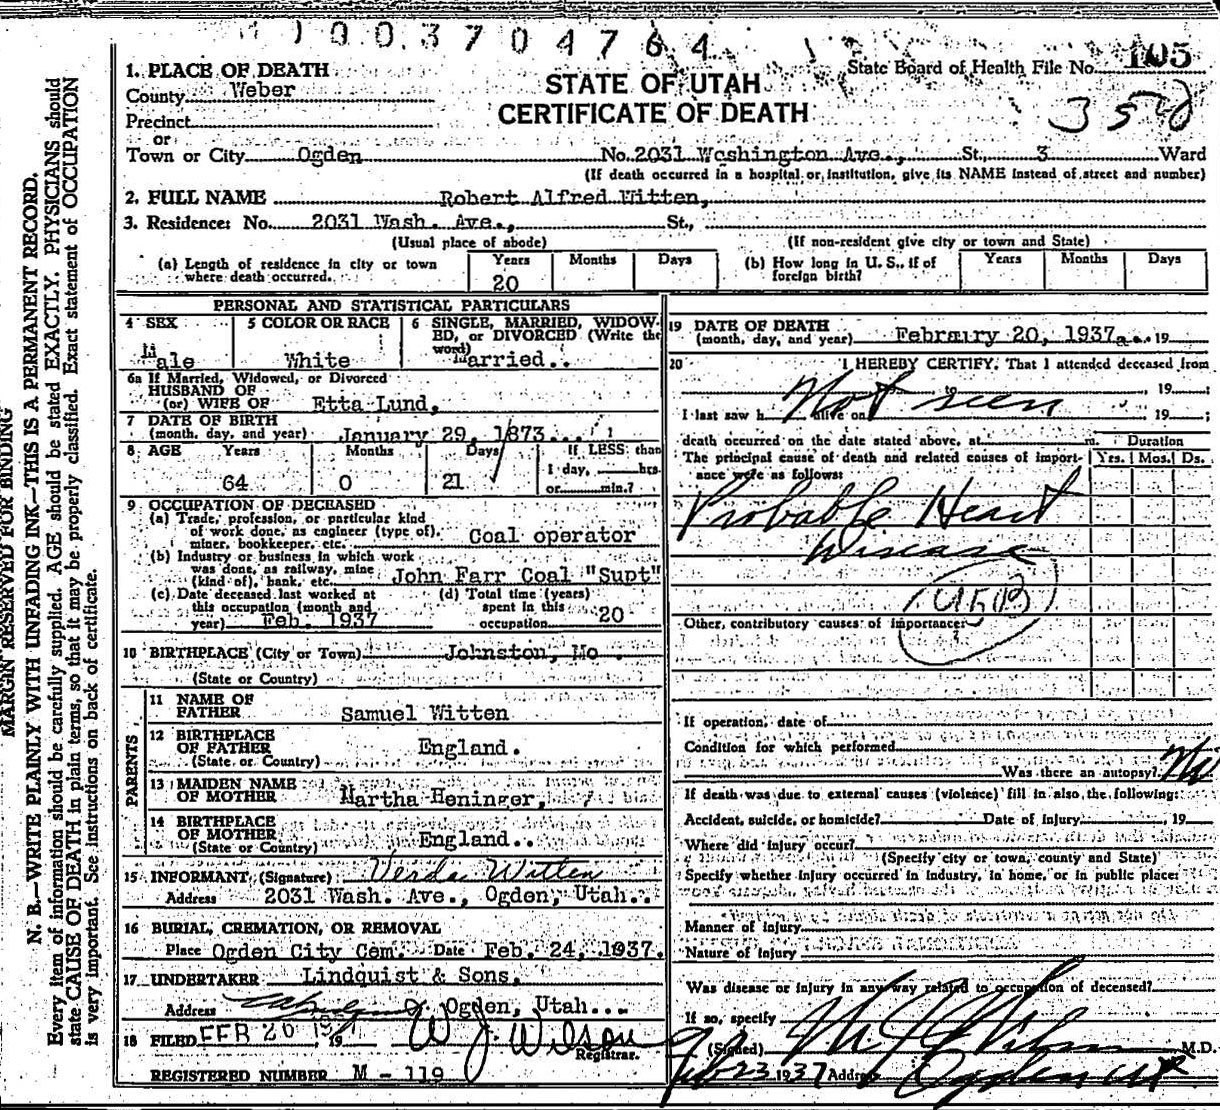 1003704764
State Board of Health File No. 105
3 5
1. PLACE OF DEATH
STATE OF UTAH
CERTIFICATE OF DEATH
County Weber
Precinct
or
Town or City Ogden No. 2031 Washington Ave., St., 3 Ward
(If death occurred in a hospital or institution, give its NAME instead of street and number)
2. FULL NAME Robert Alfred Witten,
3. Residence: No. 2031 Wash. Ave., St.,
(Usual place of abode) (If non-resident give city or town and State)
(a) Length of residence in city or town where death occurred. Years 20 Months Days
(b) How long in U. S., if of foreign birth? Years Months Days
PERSONAL AND STATISTICAL PARTICULARS
4 SEX Male
5 COLOR OR RACE White
6 SINGLE, MARRIED, WIDOW-
ED, or DIVORCED (Write the
word) Married..
6a If Married, Widowed, or Divorced
HUSBAND OF
(or) WIFE OF Etta Lund,
7 DATE OF BIRTH
(month, day, and year) January 29, 1873...
8 AGE Years 64 Months 0 Days 21
If LESS than
1 day, hrs.
or min.?
9 OCCUPATION OF DECEASED
(a) Trade, profession, or particular kind
of work done, as engineer (type of),
miner, bookkeeper, etc. Coal operator
(b) Industry or business in which work
was done, as railway, mine
(kind of), bank, etc. John Farr Coal "Supt"
(c) Date deceased last worked at
this occupation (month and
year) Feb. 1937
(d) Total time (years)
spent in this
occupation 20
10 BIRTHPLACE (City or Town) Johnston, Mo.
(State or Country)
PARENTS
11 NAME OF
FATHER Samuel Witten
12 BIRTHPLACE
OF FATHER England.
(State or Country)
13 MAIDEN NAME
OF MOTHER Martha Heninger,
14 BIRTHPLACE
OF MOTHER England..
(State or Country)
15 INFORMANT (Signature) Verda Witten
Address 2031 Wash. Ave., Ogden, Utah..
16 BURIAL, CREMATION, OR REMOVAL
Place Ogden City Cem. Date Feb. 24, 1937.
17 UNDERTAKER Lindquist & Sons,
Address Ogden, Utah...
18 FILED FEB 26 1937 19 W. J. Wilson
Registrar.
REGISTERED NUMBER M - 119
19 DATE OF DEATH
(month, day, and year) February 20, 1937 19
20 I HEREBY CERTIFY, That I attended deceased from
, 19 ;
Not seen
I last saw h alive on 19 ;
death occurred on the date stated above, at m. Duration
The principal cause of death and related causes of import-
ance were as follows: Yrs. Mos. Ds.
Probable Heart
Disease
Other contributory causes of importance:
If operation, date of
Condition for which performed
Was there an autopsy? No
If death was due to external causes (violence) fill in also the following:
Accident, suicide, or homicide? Date of injury , 19
Where did injury occur?
(Specify city or town, county and State)
Specify whether injury occurred in industry, in home, or in public place:
Manner of injury
Nature of injury
Was disease or injury in any way related to occupation of deceased?
If so, specify
(Signed) M.D.
Feb 23 1937 Address Ogden Ut
MARGIN RESERVED FOR BINDING
N. B.—WRITE PLAINLY WITH UNFADING INK—THIS IS A PERMANENT RECORD.
Every item of information should be carefully supplied. AGE should be stated EXACTLY. PHYSICIANS should
state CAUSE OF DEATH in plain terms, so that it may be properly classified. Exact statement of OCCUPATION
is very important. See instructions on back of certificate.